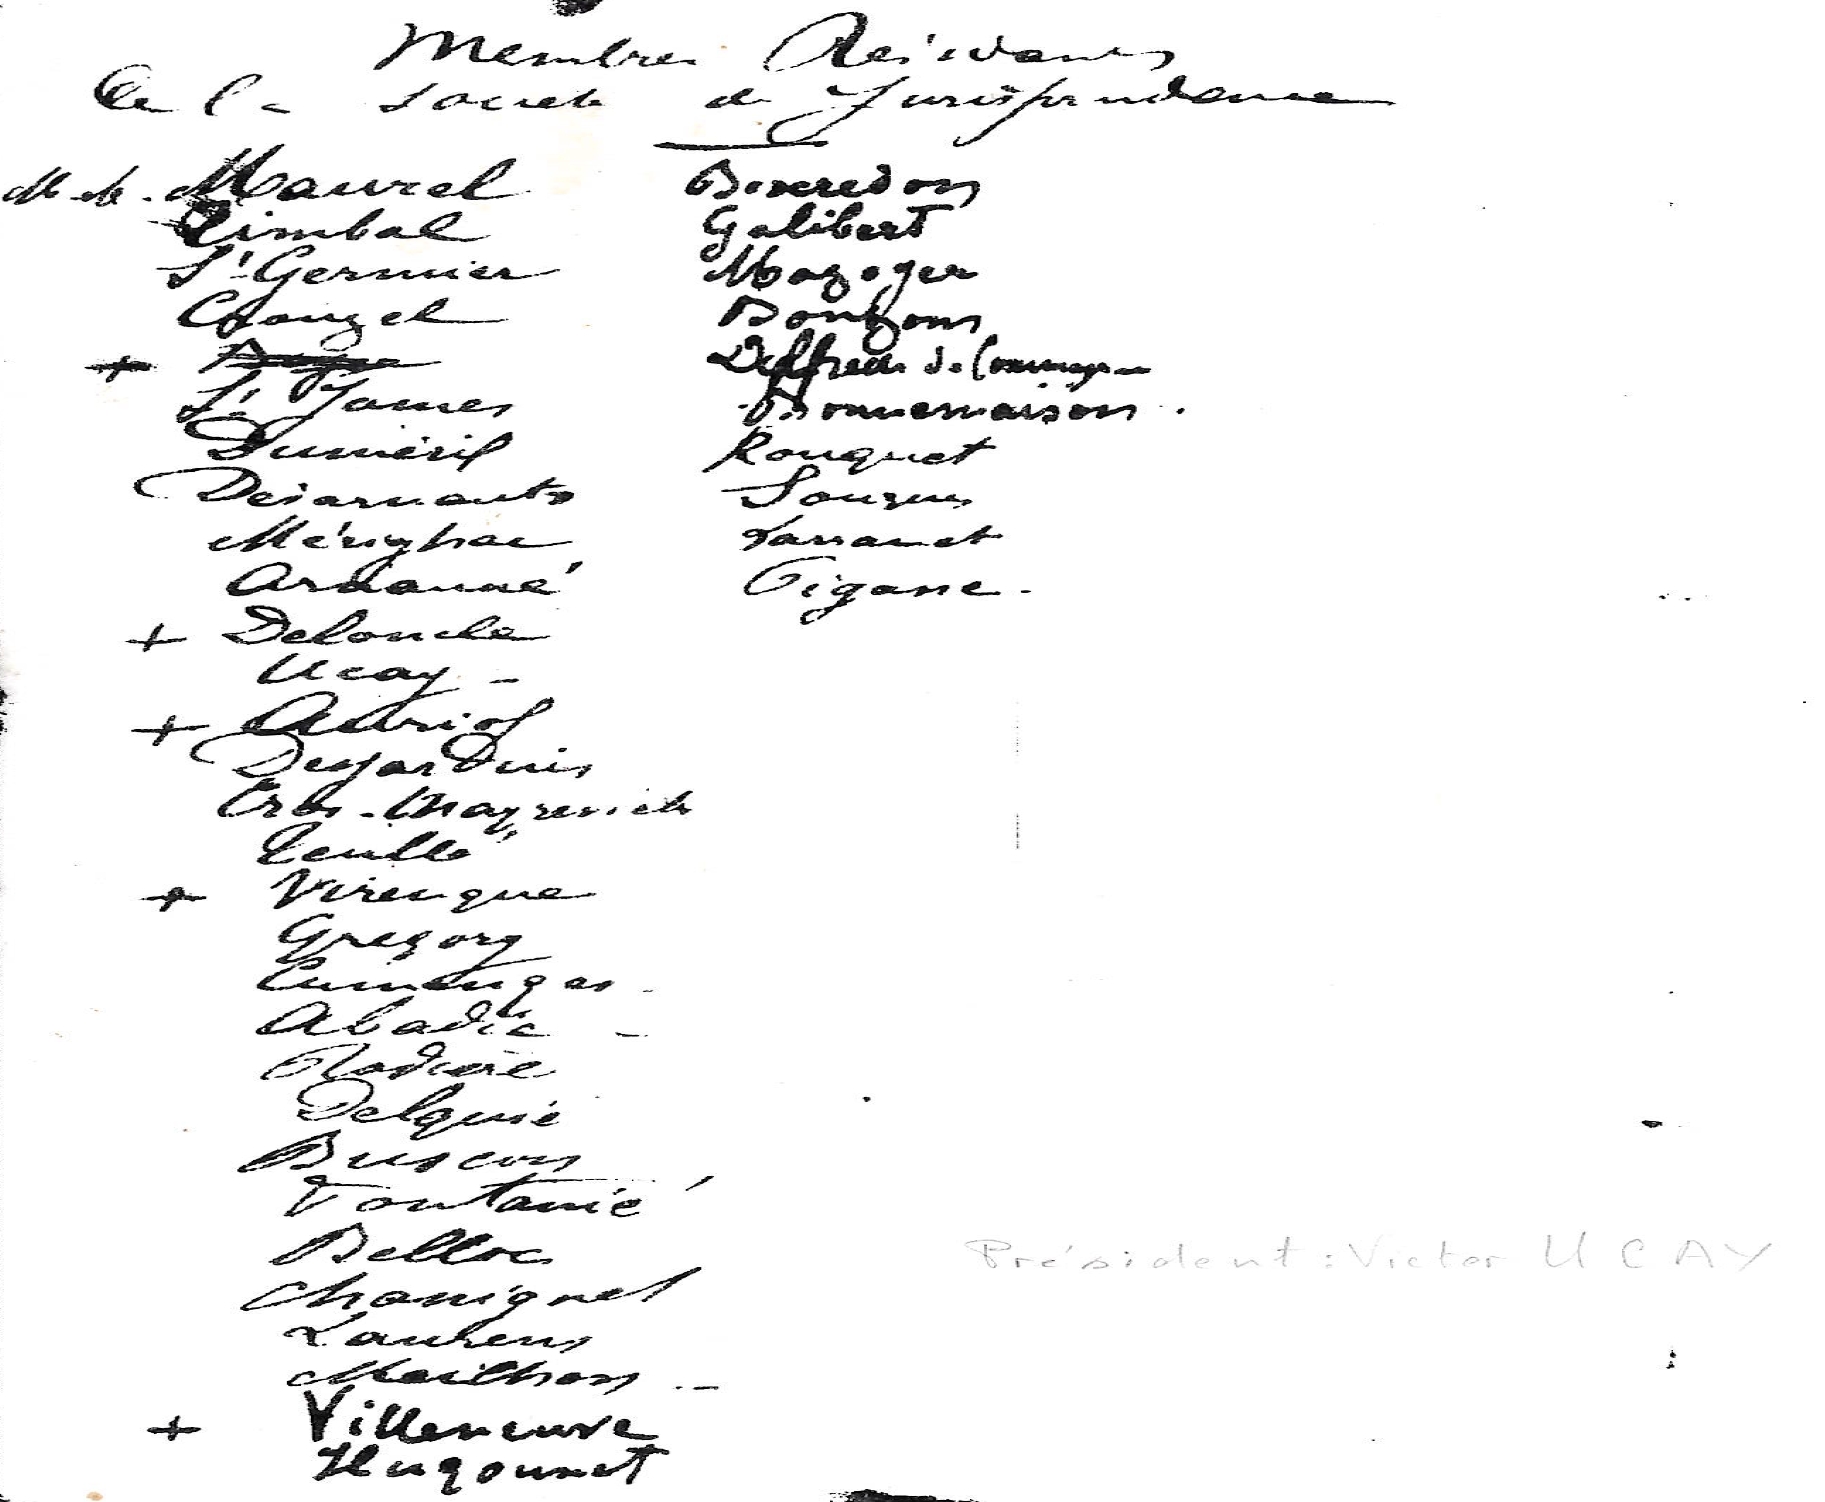 Membres Résidants
De la Société de Jurisprudence
M.M. Maurel
Timbal
St Germier
Crouzel
+
St James
Duméril
Desarnauts
Mérighac
Arnauné
+ Deloncle
Ucay -
+ Auriol
Desjardins
Cros-Mayrevieille
Teullé
+ Virenque
Gregory
Cumenges
Abadie -
Rodière
Delquié
Buscon
Fontanié
Belloc
Chauriguel
Laurens
Mailhon --
+ Villeneuve
Hugounet
Boscredon
Galibert
Mazoyer
Bonzom
Bonnemaison.
Rouquet
Sourrus
Larranet
Gigane.
Président : Victor UCAY